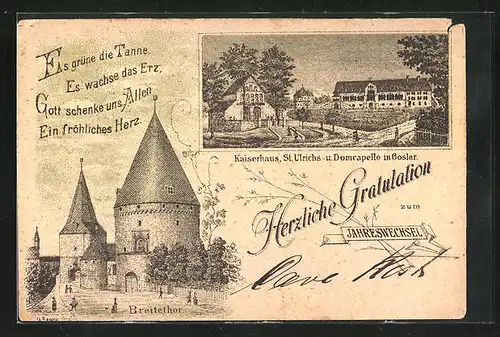 Es grüne die Tanne,
Es wachse das Erz,
Gott schenke uns Allen
Ein fröhliches Herz.
Kaiserhaus, St. Ulrichs- u. Domcapelle in Goslar.
Herzliche Gratulation
zum
JAHRESWECHSEL
Breitethor.